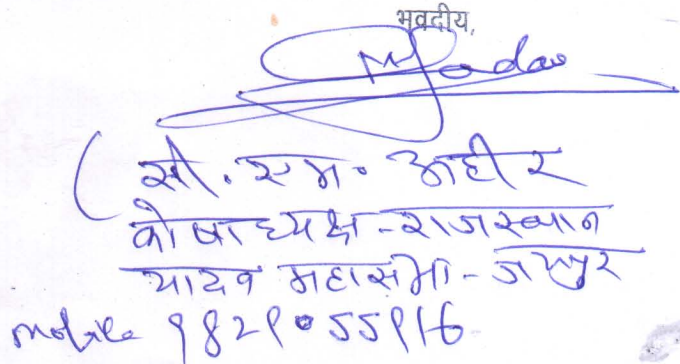 भवदीय,
CMYadav
(सी. एम. अहीर
कोषाध्यक्ष - राजस्थान
यादव महासभा - जयपुर
mobile 9829055916